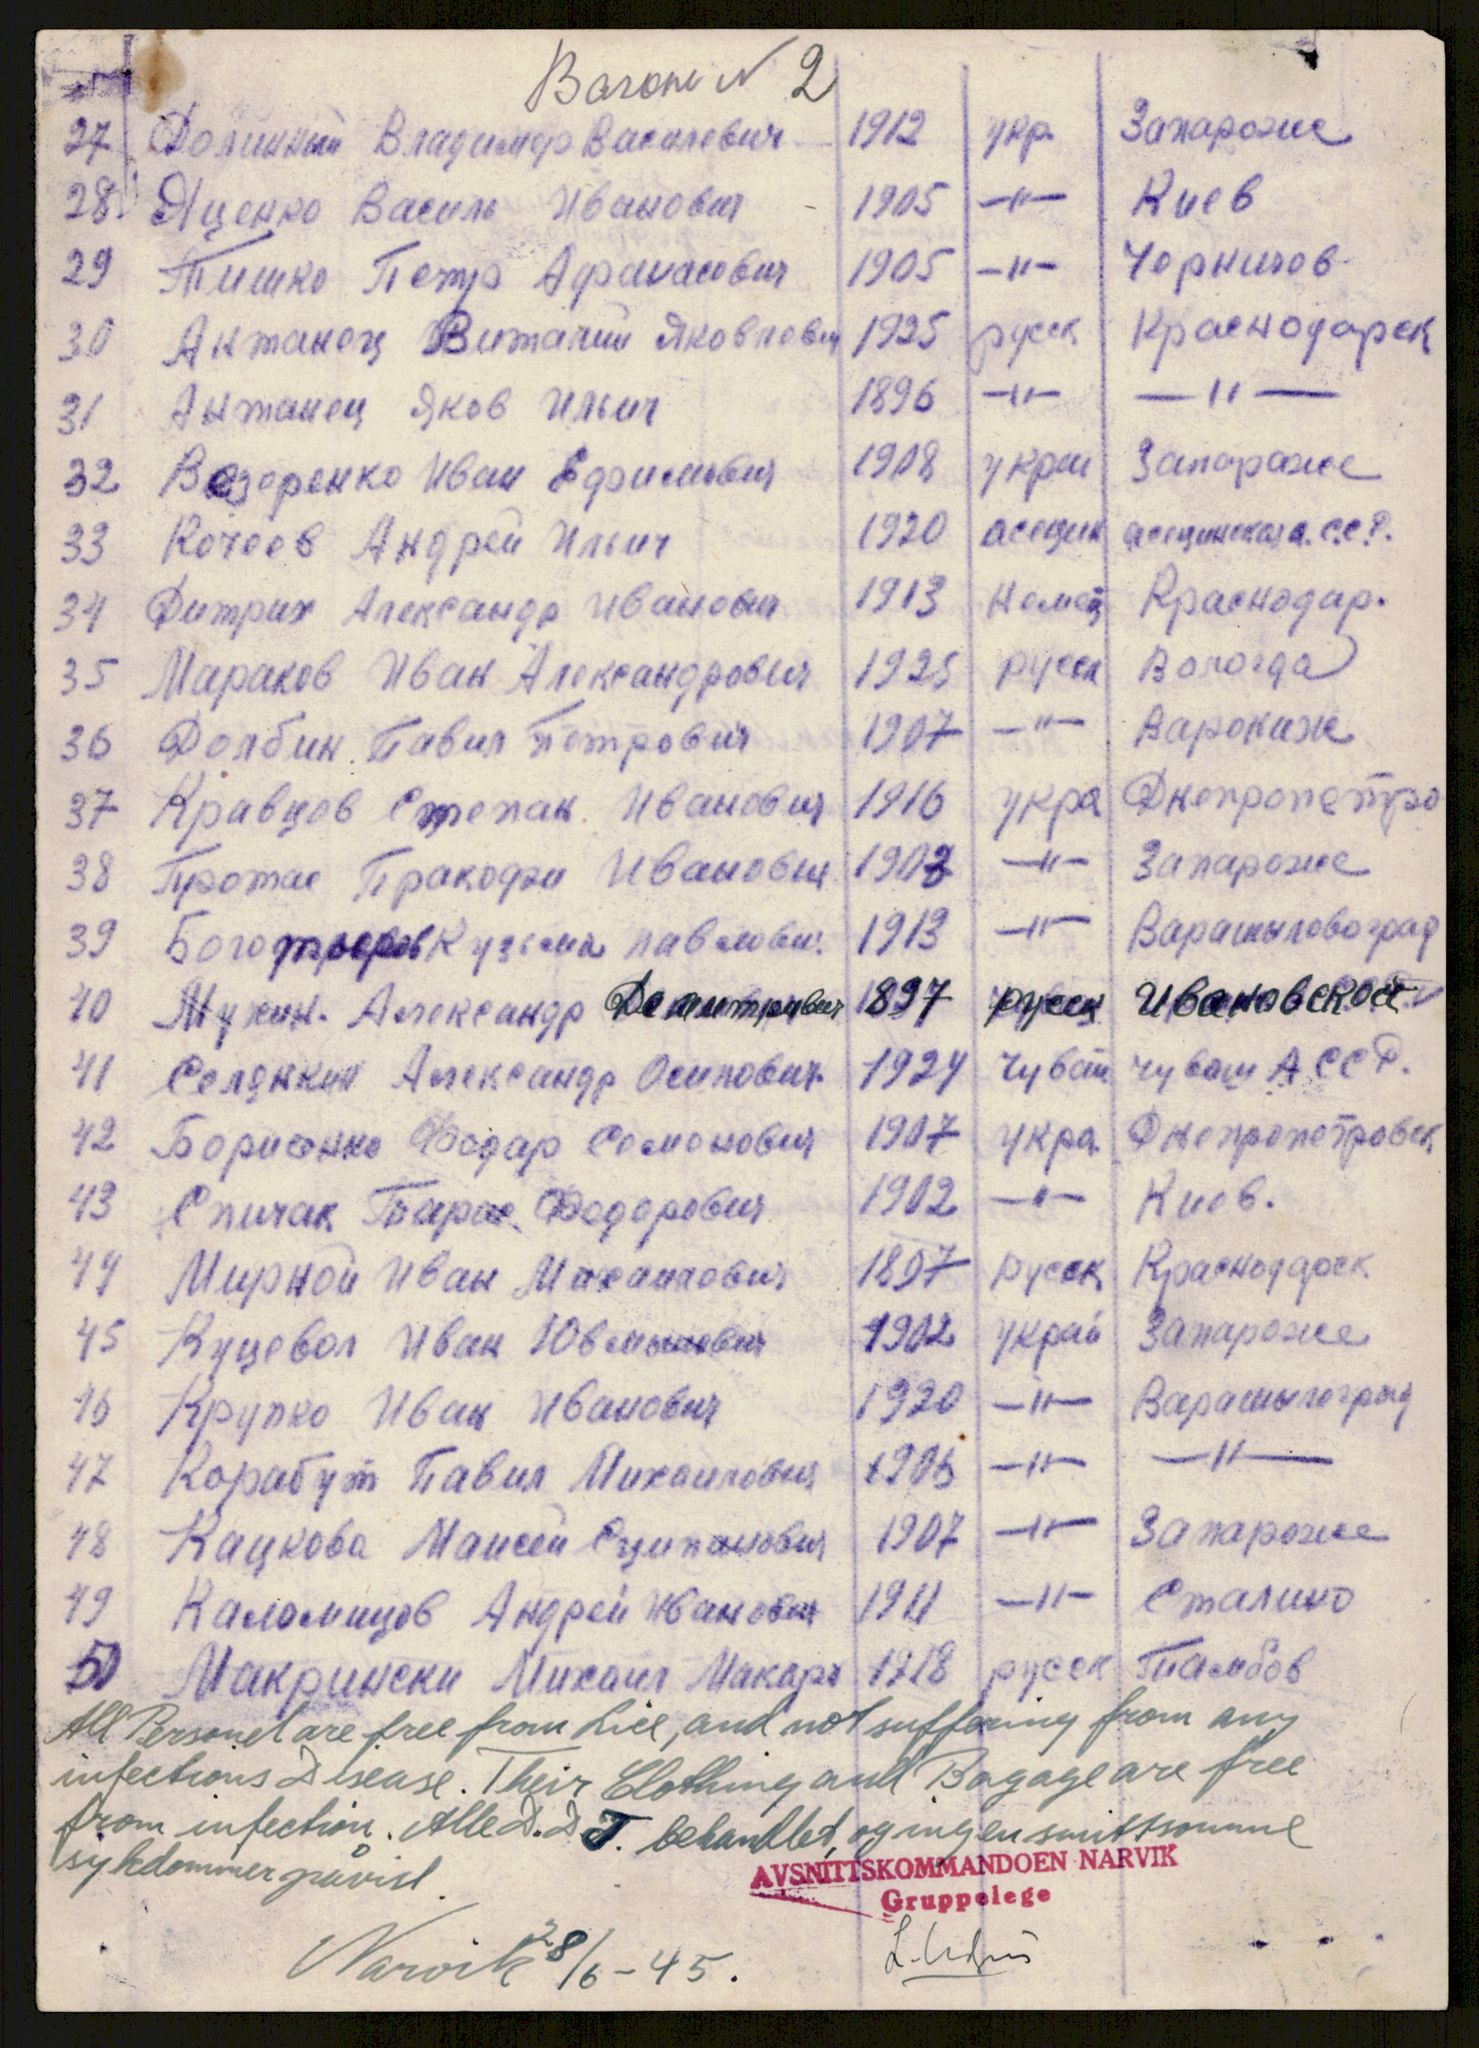 Вагон N 2
27 Долинный Владимир Василевич 1912 укр Запароже
28 Яценко Василь Иванович 1905 —"— Киев
29 Тишко Петр Афанасович 1905 —"— Чернигов
30 Антанец Виталий Яковлевич 1925 русск Краснодарск
31 Антанец Яков Ильич 1896 —"— —"—
32 Иван Ефримович 1908 украи Запороже
33 Кочеев Андрей Ильич 1920 асецин асецинская а.С.С.Р.
34 Дитрих Александр Иванович 1913 Немец Краснодар.
35 Мараков Иван Александрович 1925 русск Вологда
36 Долбин Павил Петрович 1907 —"— Варониж
37 Кравцов Степан Иванович 1916 укра Днепропетро
38 Протас Пракофи Иванович 1903 —"— Запароже
39 Кузьма павлови. 1913 —"— Варашыловоград
40 Мухин. Александр Демитривич 1897 русск Ивановской
41 Селянкин Александр Осипович 1924 Чуваш чуваш АССР.
42 Борисенко Федар Семонович 1907 укра Днепропетровск
43 Спичак Тарас Федорович 1902 —"— Киев.
44 Мирной Иван Михаилович 1897 русск Краснодарск
45 Куцевол Иван 1902 украи Запароже
46 Крупко Иван Иванович 1920 —"— Варашылоград
47 Карабут Павил Михаилович —"— —"—
48 Кацкова Маисей 1907 —"— Запароже
49 Каломицов Андрей Иванович 1911 —"— Сталино
50 Макрински Михаил Макаро 1918 русск Тамбов
All Personel are free from Lice, and not suffering from any
infections Disease. Their Clothing and Bagage are free
from infection. Alle D.D.T. behandlet, og ingen smittsomme
sykdommer påvist.
AVSNITTSKOMMANDOEN NARVIK
Gruppelege
Narvik 28/6-45.